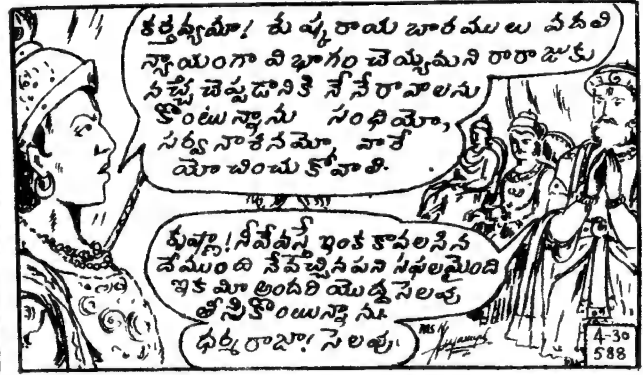 కర్తవ్యమా! శుష్క రాయ బారములు వదలి
న్యాయంగా విభాగం చెయ్యమని రారాజుకు
నచ్చ చెప్పడానికి నేనే రావాలను
కొంటున్నాను సంధియో,
సర్వ నాశనమో, వారే
యోచించుకోవాలి.
కృష్ణా! నీవేవస్తే ఇంక కావలసిన
దేముంది నేవచ్చినపని సఫలమైంది
ఇక మీ అందరి యొద్ద సెలవు
తీసికొంటున్నాను.
ధర్మరాజా! సెలవు.
4-30
588